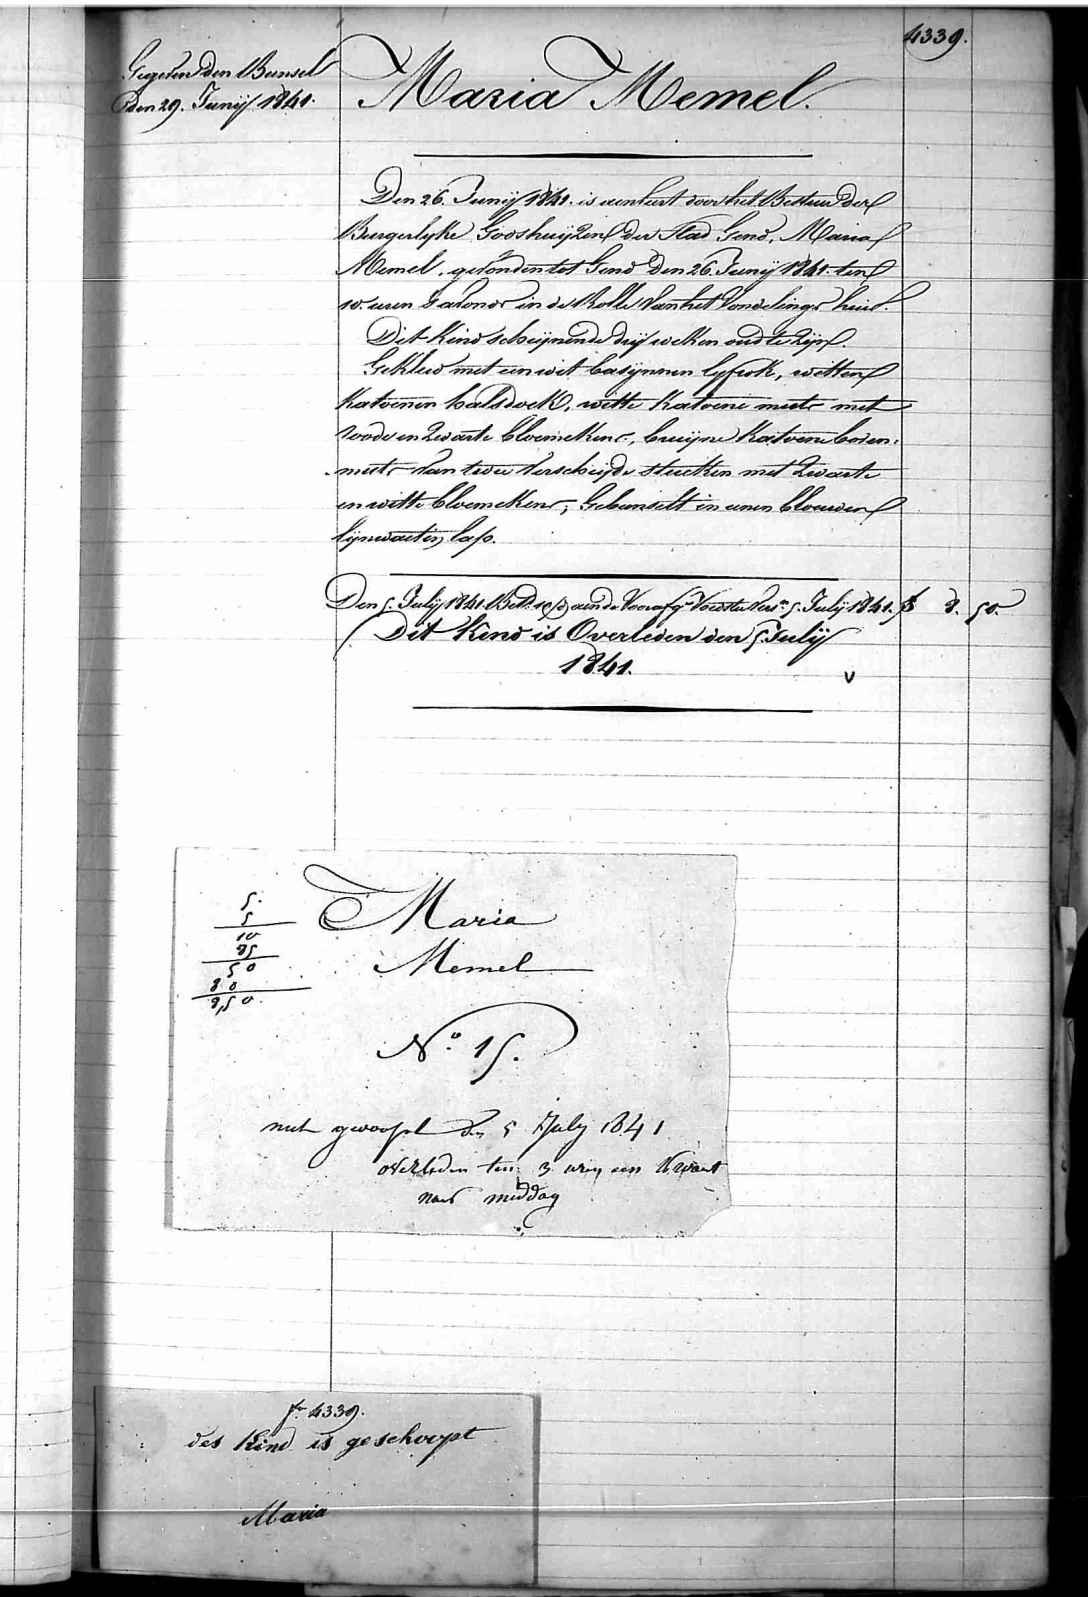 4339.
Gegeven den Bunsel
den 29. Junij 1841.
Maria Memel.
Den 26. Junij 1841. is aenveert door het Bestuer der
Burgerlyke Godshuijzen der Stad Gend, Maria
Memel, gevonden tot Gend den 26. Junij 1841. ten
10. uren s'avonds in de Rolle van het Vondelings huis.
Dit Kind scheijnende drij weken oud te zijn.
Gekleed met een wit basijnnen lyfrok, witten
katoenen halsdoek, witte katoene muts met
roode en zwarte bloemekens, bruijne katoene boven-
muts van twee verscheijde stucken met zwarte
en witte bloemekens; Gebunselt in eenen blouwen
lijnwaeten lap.
Den 5. Julij 1841. aen de Voorsz. 5. Julij 1841. f 8. 50.
Dit Kind is Overleden den 5. Julij
1841.
v
5.
5
10
85
50
80
8,50
Maria
Memel
No. 15.
den 5 July 1841
overleden ten 3 uren een kwaert
naer middag
fo. 4339.
des Kind is geschoopt
Maria